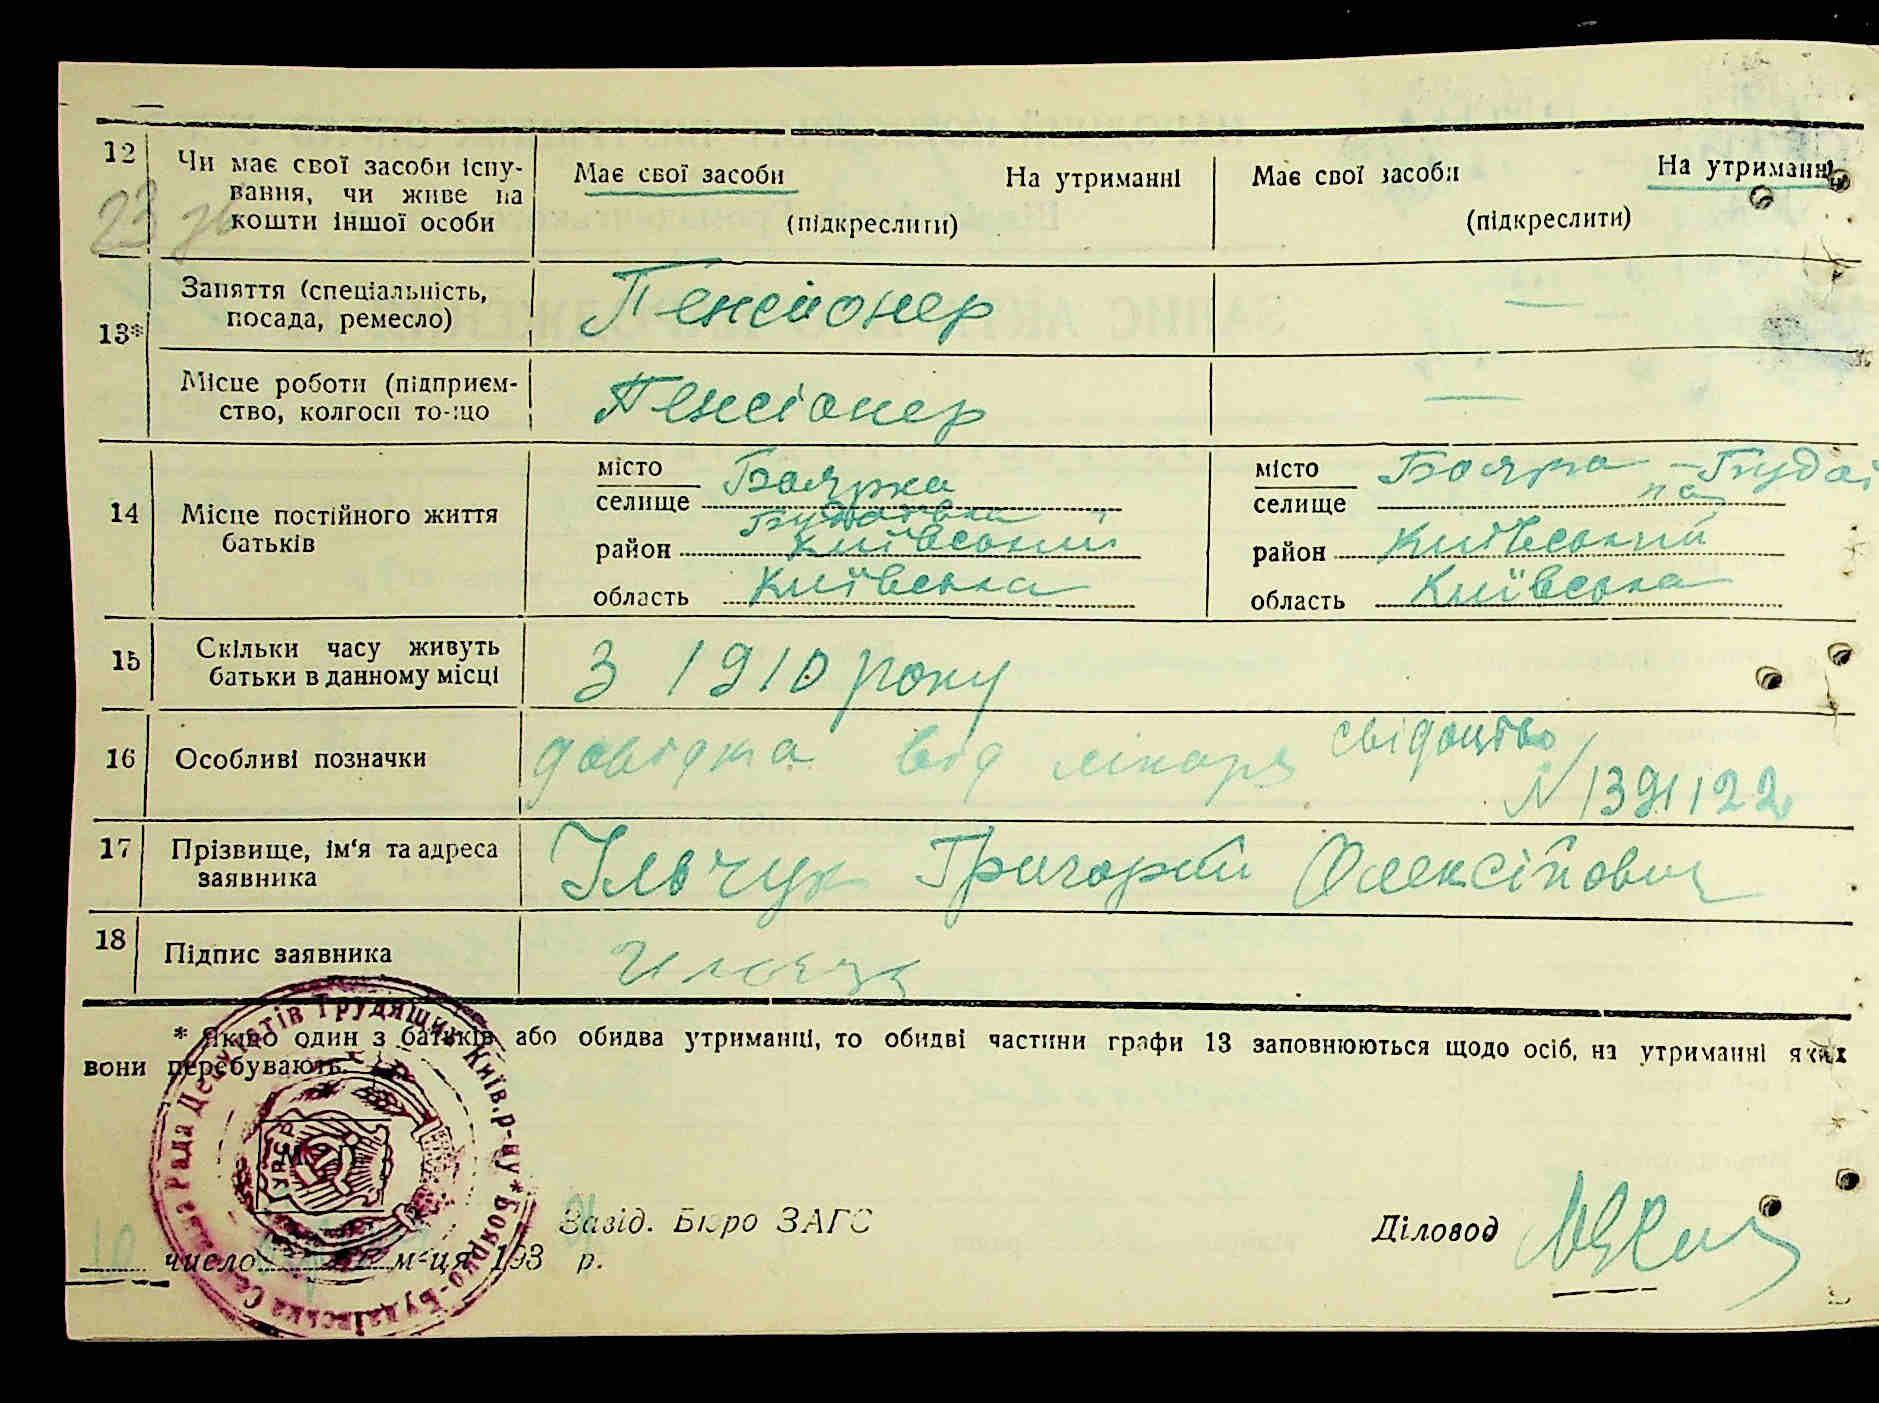 12
Чи має свої засоби існу-
вання, чи живе на
кошти іншої особи
Має свої засоби На утриманні
(підкреслити)
Має свої засоби На утриманні
(підкреслити)
23
13*
Заняття (спеціальність,
посада, ремесло)
Пенсіонер
—
Місце роботи (підприєм-
ство, колгосп то-що
Пенсіонер
—
14
Місце постійного життя
батьків
місто
селище Боярка
Будаївка
район Київський
область Київська
місто Боярка - Будаї
селище
район Київський
область Київська
15
Скільки часу живуть
батьки в данному місці
З 1910 року
16
Особливі позначки
довідка від лікаря свідоцтво
N 1391122
17
Прізвище, ім'я та адреса
заявника
Ільчук Григорій Олексійович
18
Підпис заявника
* Якщо один з батьків або обидва утриманці, то обидві частини графи 13 заповнюються щодо осіб, на утриманні яких
вони перебувають.
Рада Депутатів Трудящих Київ. р-ну * Боярко-Будаївська
УРСР
М. П.
Завід. Бюро ЗАГС
Діловод
10 число м-ця 193 р.